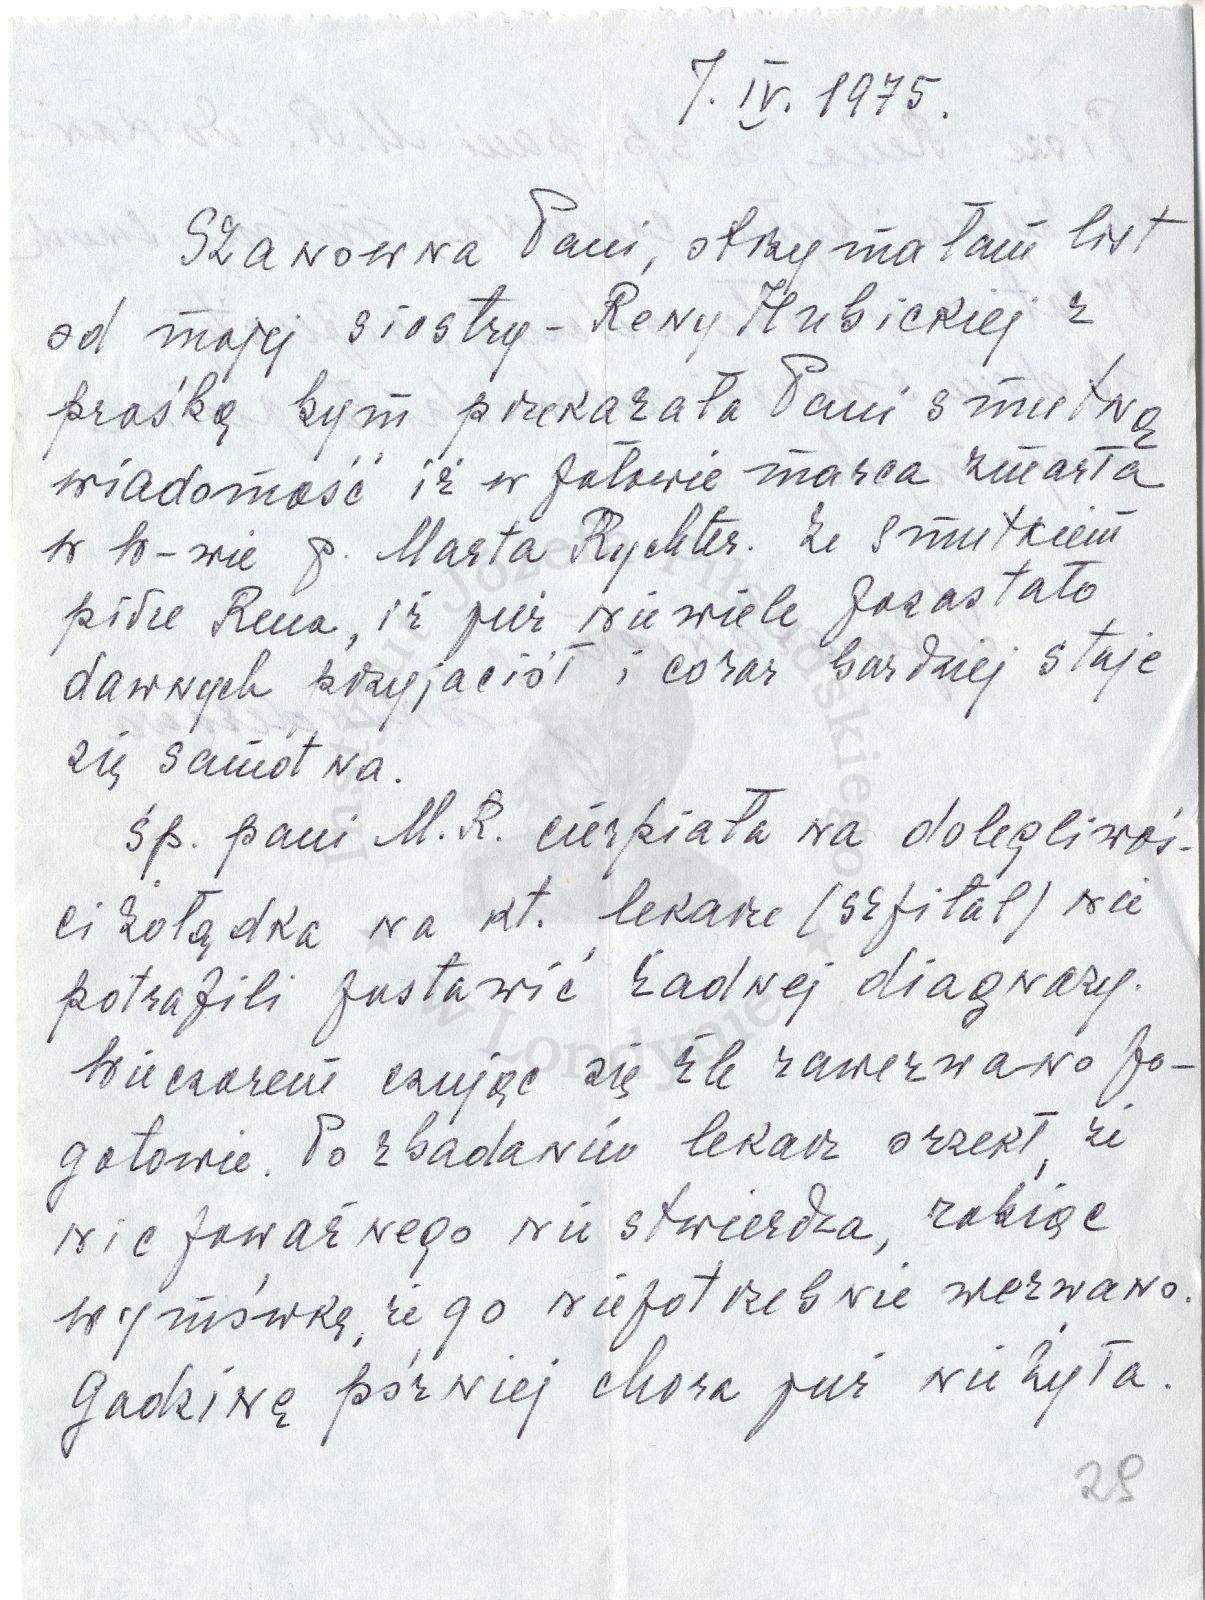 7. IV. 1975.
Szanowna Pani, otrzymałam list
od mojej siostry - Reny Hubickiej z
prośbą bym przekazała Pani smutną
wiadomość iż w połowie marca zmarła
w W-wie p. Marta Rychter. Ze smutkiem
pisze Rena, iż już niewiele pozostało
dawnych przyjaciół i coraz bardziej staje
się samotna.
Śp. pani M.R. cierpiała na dolegliwoś-
ci żołądka na kt. lekarze (szpital) nie
potrafili postawić żadnej diagnozy.
Wieczorem czując się źle zawezwano po-
gotowie. Po zbadaniu lekarz orzekł, że
nic poważnego nie stwierdza, robiąc
wymówkę, że go niepotrzebnie wezwano.
Godzinę później chora już nie żyła.
29
Instytut Józefa Piłsudskiego
w Londynie